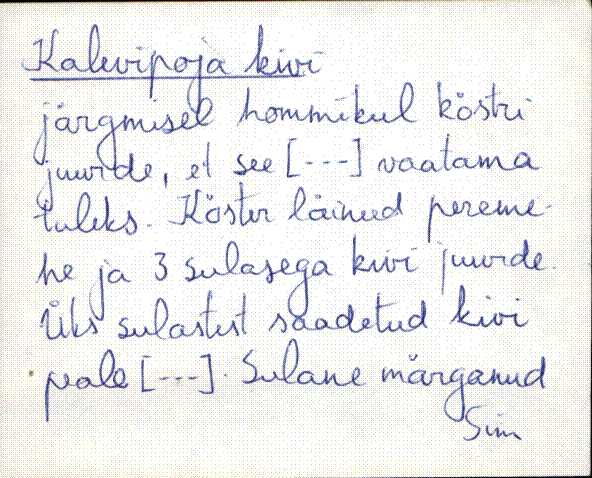 Kalevipoja kivi
järgmisel hommikul köstri
juurde, et see [---] vaatama
tuleks. Köster läinud pereme-
he ja 3 sulasega kivi juurde.
Üks sulastest saadetud kivi
peale [---]. Sulane märganud
Sim